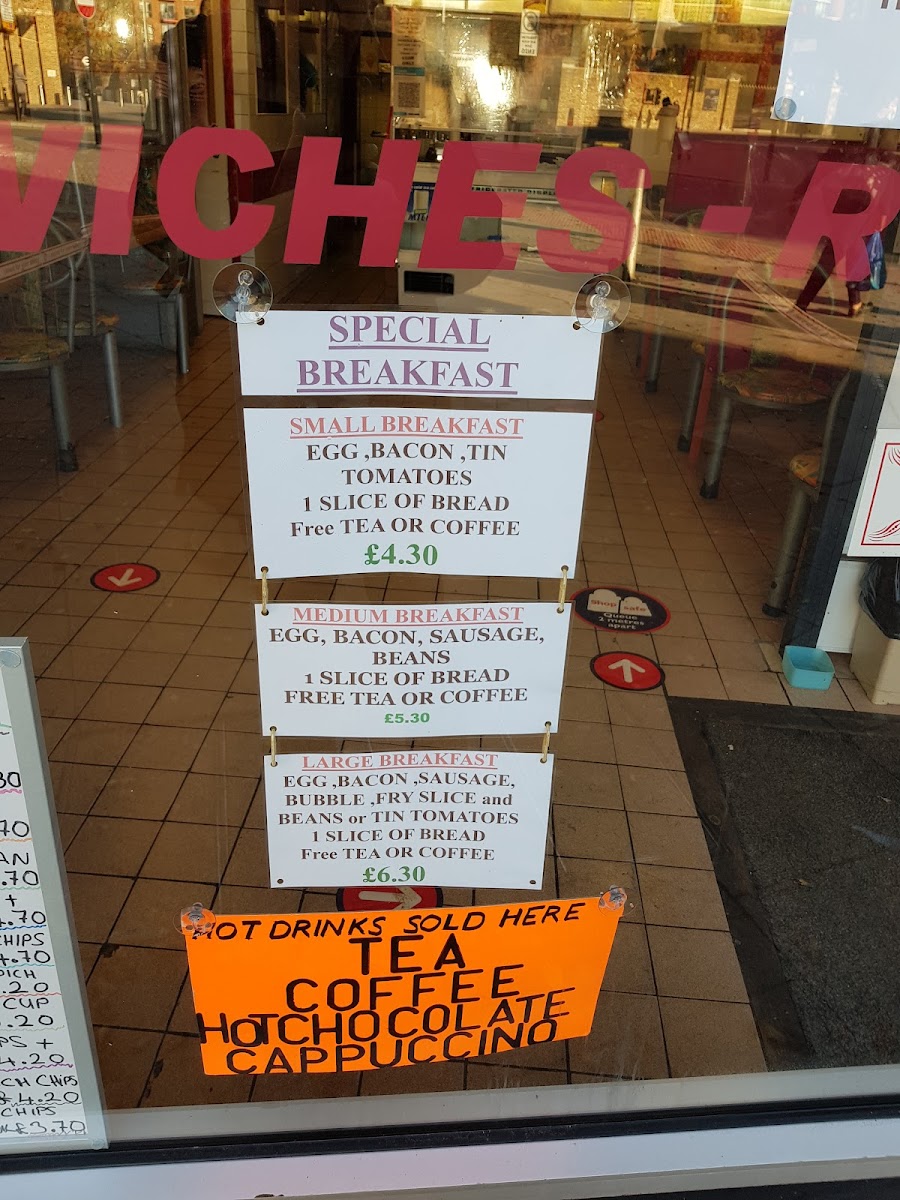 VICHES - R
SPECIAL
BREAKFAST
SMALL BREAKFAST
EGG ,BACON ,TIN
TOMATOES
1 SLICE OF BREAD
Free TEA OR COFFEE
£4.30
MEDIUM BREAKFAST
EGG, BACON, SAUSAGE,
BEANS
1 SLICE OF BREAD
FREE TEA OR COFFEE
£5.30
LARGE BREAKFAST
EGG ,BACON ,SAUSAGE,
BUBBLE ,FRY SLICE and
BEANS or TIN TOMATOES
1 SLICE OF BREAD
Free TEA OR COFFEE
£6.30
HOT DRINKS SOLD HERE
TEA
COFFEE
HOT CHOCOLATE
CAPPUCCINO
Shop safe
Queue
2 metres
apart
30
70
AN
.70
+
4.70
CHIPS
4.70
.20
CUP
.20
PS +
4.20
CH CHIPS
£4.20
CHIPS
£3.70